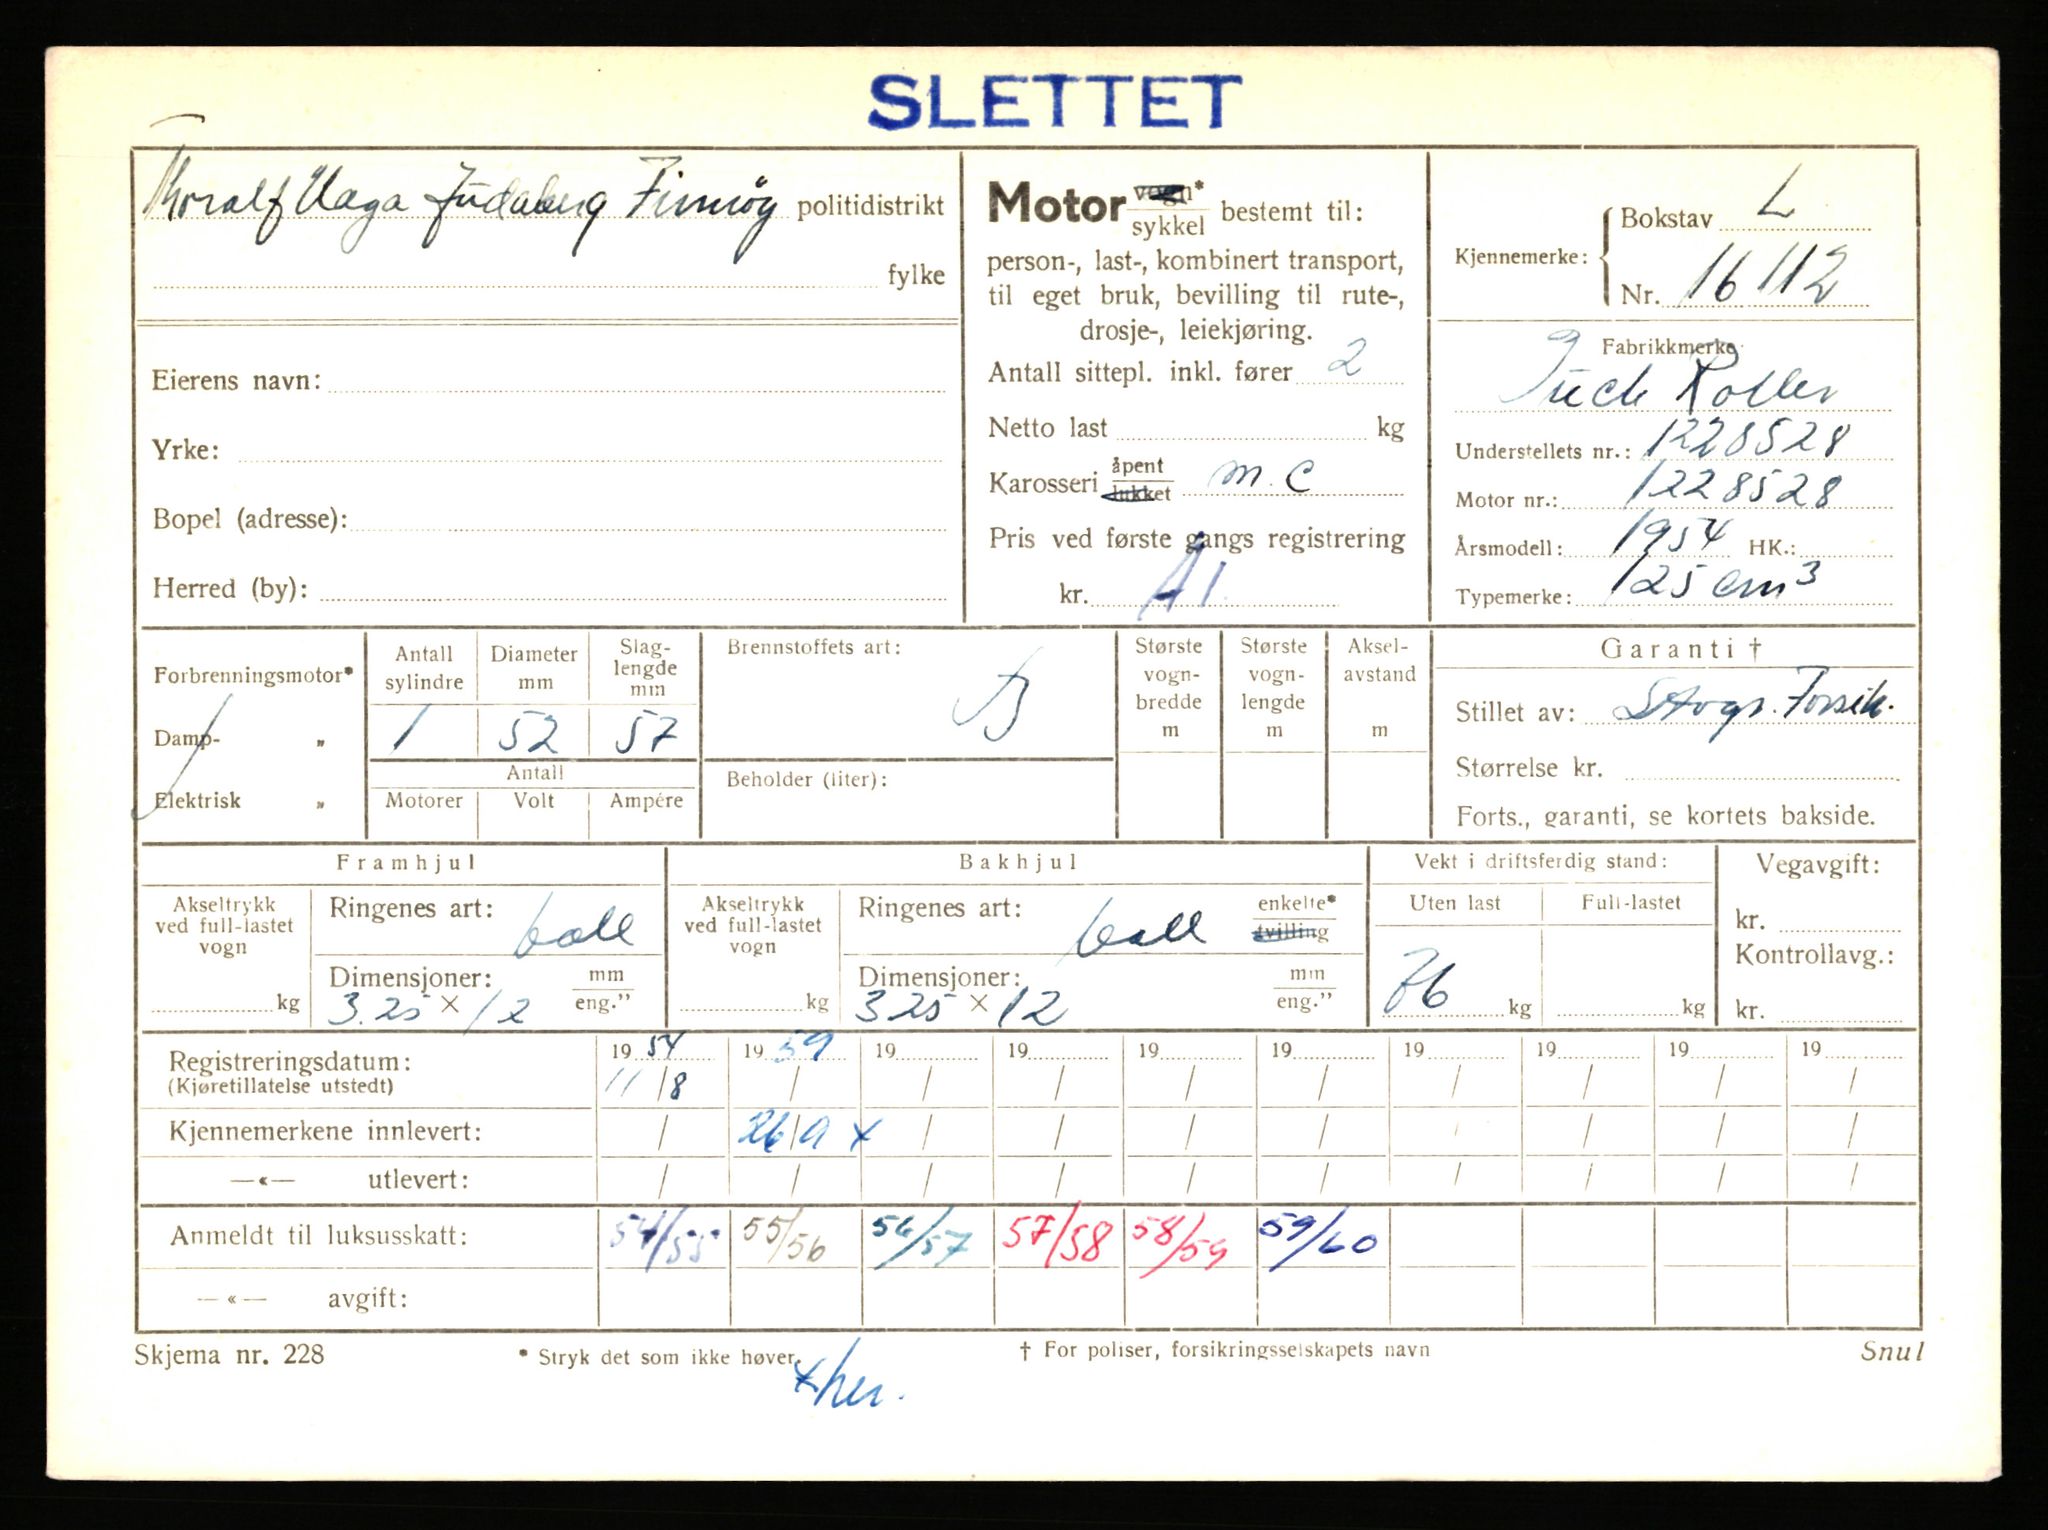 SLETTET
Thoralf Haga Judaberg Finnøy politidistrikt
fylke
Eierens navn:
Yrke:
Bopel (adresse):
Herred (by):
Motor vogn* sykkel bestemt til:
person-, last-, kombinert transport,
til eget bruk, bevilling til rute-,
drosje-, leiekjøring.
Antall sittepl. inkl. fører 2
Netto last kg
Karosseri åpent lukket m.c
Pris ved første gangs registrering
kr. A1.
Kjennemerke: Bokstav L
Nr. 16112
Fabrikkmerke
Puch Roller
Understellets nr.: 1228528
Motor nr.: 1228528
Årsmodell: 1954 HK.:
Typemerke: 125 cm3
Forbrenningsmotor*
Damp- „
Elektrisk „
Antall sylindre Diameter mm Slag-lengde mm
1 52 57
Antall
Motorer Volt Ampére
Brennstoffets art:
B
Beholder (liter):
Største vogn-bredde m
Største vogn-lengde m
Aksel-avstand m
Garanti †
Stillet av: Stvgr. Forsik.
Størrelse kr.
Forts., garanti, se kortets bakside.
Framhjul
Akseltrykk ved full-lastet vogn kg
Ringenes art: ball
Dimensjoner: mm eng."
3.25 × 12
Bakhjul
Akseltrykk ved full-lastet vogn kg
Ringenes art: ball enkelte* tvilling
Dimensjoner: mm eng."
325 × 12
Vekt i driftsferdig stand:
Uten last Full-lastet
76 kg kg
Vegavgift:
kr.
Kontrollavg.:
kr.
Registreringsdatum: 19 54 19 59 19 19 19 19 19 19 19 19
(Kjøretillatelse utstedt) 11/8 / / / / / / / / /
Kjennemerkene innlevert: / 26/9 x / / / / / / / /
—«— utlevert: / / / / / / / / / /
Anmeldt til luksusskatt: 54/55 55/56 56/57 57/58 58/59 59/60
—«— avgift:
Skjema nr. 228 * Stryk det som ikke høver. † For poliser, forsikringsselskapets navn Snul
x her.